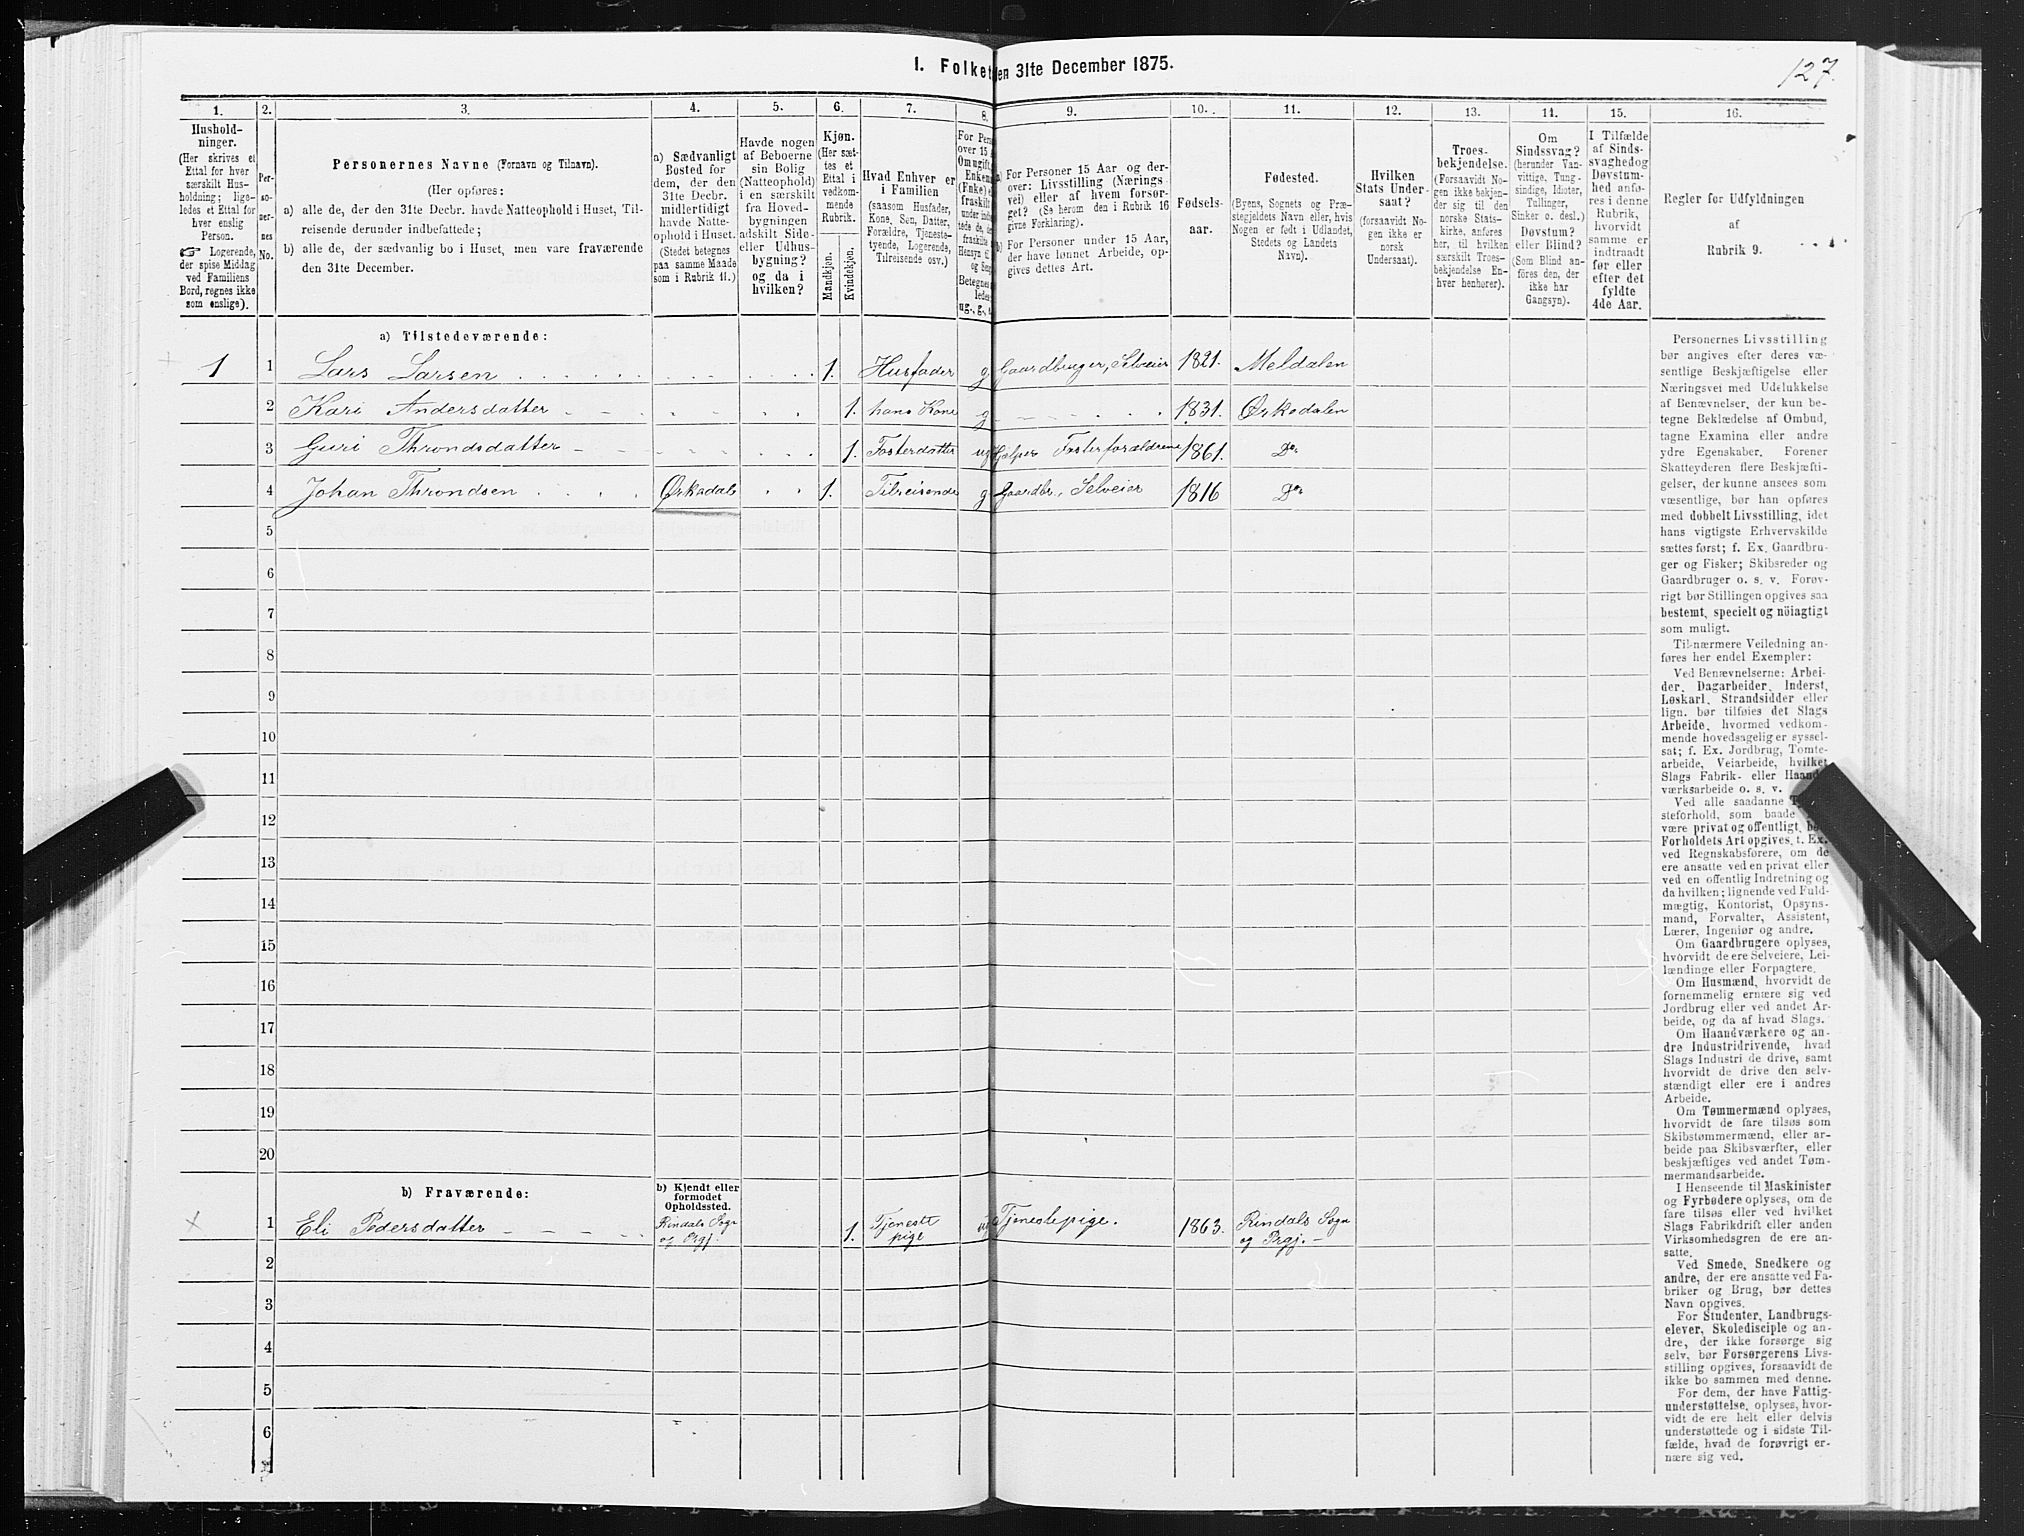 127.
I. Folket
en 31te December 1875.
1. 2. 3. 4. 5. 6. 7. 8. 9. 10. 11. 12. 13. 14. 15. 16.
Hushold-
ninger.
(Her skrives et
Ettal for hver
særskilt Hus-
holdning; lige-
ledes et Ettal for
hver enslig
Person.
☞ Logerende,
der spise Middag
ved Familiens
Bord, regnes ikke
som enslige).
Per-
so-
ner-
nes
No.
Personernes Navne (Fornavn og Tilnavn).
(Her opføres:
a) alle de, der den 31te Decbr. havde Natteophold i Huset, Til-
reisende derunder indbefattede;
b) alle de, der sædvanlig bo i Huset, men vare fraværende
den 31te December.
a) Sædvanligt
Bosted for
dem, der den
31te Decbr.
midlertidigt
havde Natte-
ophold i Huset.
(Stedet betegnes
paa samme Maade
som i Rubrik 11.)
Havde nogen
af Beboerne
sin Bolig
(Natteophold)
i en særskilt
fra Hoved-
bygningen
adskilt Side-
eller Udhus-
bygning?
og da i
hvilken?
Kjøn.
(Her sæt-
tes et
Ettal i
vedkom-
mende
Rubrik.
Mandkjøn.
Kvindekjøn.
Hvad Enhver er
i Familien
(saasom Husfader,
Kone, Søn, Datter,
Forældre, Tjeneste-
tyende, Logerende,
Tilreisende osv.)
For Pers
over 15 A
Om ugift,
Enkem
(Fnke) e
fraskilt
under ind
tede de, d
fraskilte
Hensyn til
og Seng
Betegnes
ledes
ug., g.,
a) For Personer 15 Aar og der-
over: Livsstilling (Nærings-
vei) eller af hvem forsør-
get? (Se herom den i Rubrik 16
givne Forklaring).
b) For Personer under 15 Aar,
der have lønnet Arbeide, op-
gives dettes Art.
Fødsels-
aar.
Fødested.
(Byens, Sognets og Præ-
stegjeldets Navn eller, hvis
Nogen er født i Udlandet,
Stedets og Landets
Navn).
Hvilken
Stats Under-
saat?
(forsaavidt No-
gen ikke er
norsk
Undersaat).
Troes-
bekjendelse.
(Forsaavidt No-
gen ikke bekjen-
der sig til den
norske Stats-
kirke, anføres
her, til hvilken
særskilt Troes-
bekjendelse En-
hver henhører).
Om
Sindssvag?
(herunder Van-
vittige, Tung-
sindige, Idioter,
Tullinger,
Sinker o. desl.)
Døvstum?
eller Blind?
(Som Blind an-
føres den, der
ikke har
Gangsyn).
I Tilfælde
af Sinds-
svaghed og
Døvstum-
hed anfø-
res i denne
Rubrik,
hvorvidt
samme er
indtraadt
før eller
efter det
fyldte
4de Aar.
Regler for Udfyldningen
af
Rubrik 9.
a) Tilstedeværende:
1 1 Lars Larsen 1. Husfader g Gaardbruger, Selveier 1821. Meldalen
2 Kari Andersdatter 1. hans Kone g 1831. Ørkedalen
3 Guri Throndsdatter 1. Fosterdatter ug Hjelper Fosterforældrene 1861. Do
4 Johan Throndsen Ørkedal 1. Tilreisende g Gaardbr., Selveier 1816 Do
5
6
7
8
9
10
11
12
13
14
15
16
17
18
19
20
b) Fraværende:
b) Kjendt eller
formodet
Opholdssted.
1 Eli Pedersdatter Rindals Sogn 1. Tjeneste ug Tjenestepige. 1863. Rindals Sogn
og Prgj. pige og Prgj.
2
3
4
5
6
Personernes Livsstilling
bør angives efter deres væ-
sentlige Beskjæftigelse eller
Næringsvei med Udelukkelse
af Benævnelser, der kun be-
tegne Beklædelse af Ombud,
tagne Examina eller andre
ydre Egenskaber. Forener
Skatteyderen flere Beskjæfti-
gelser, der kunne ansees som
væsentlige, bør han opføres
med dobbelt Livsstilling, idet
hans vigtigste Erhvervskilde
sættes først; f. Ex. Gaardbru-
ger og Fisker; Skibsreder og
Gaardbruger o. s. v. Forøv-
rigt bør Stillingen opgives saa
bestemt, specielt og nöiagtigt
som muligt.
Til nærmere Veiledning an-
føres her endel Exempler:
Ved Benævnelserne: Arbei-
der, Dagarbeider, Inderst,
Løskarl, Strandsidder eller
lign. bør tilføies det Slags
Arbeide, hvormed vedkom-
mende hovedsagelig er syssel-
sat; f. Ex. Jordbrug, Tomte-
arbeide, Veiarbeide, hvilket
Slags Fabrik- eller Haand-
værksarbeide o. s. v.
Ved alle saadanne
steforhold, som baade
være privat og offentligt,
Forholdets Art opgives, t. Ex.
ved Regnskabsførere, om de
ere ansatte ved en privat eller
ved en offentlig Indretning og
da hvilken; lignende ved Fuld-
mægtig, Kontorist, Opsyns-
mand, Forvalter, Assistent,
Lærer, Ingeniør og andre.
Om Gaardbrugere oplyses,
hvorvidt de ere Selveiere, Lei-
lændinge eller Forpagtere.
Om Husmænd, hvorvidt de
fornemmelig ernære sig ved
Jordbrug eller ved andet Ar-
beide, og da af hvad Slags.
Om Haandværkere og an-
dre Industridrivende, hvad
Slags Industri de drive, samt
hvorvidt de drive den selv-
stændigt eller ere i andres
Arbeide.
Om Tømmermænd oplyses,
hvorvidt de fare tilsøs som
Skibstømmermænd, eller ar-
beide paa Skibsværfter, eller
beskjæftiges ved andet Tøm-
mermandsarbeide.
I Henseende til Maskinister
og Fyrbødere oplyses, om de
fare tilsøs eller ved hvilket
Slags Fabrikdrift eller anden
Virksomhedsgren de ere an-
satte.
Ved Smede, Snedkere og
andre, der ere ansatte ved Fa-
briker og Brug, bør dettes
Navn opgives.
For Studenter, Landbrugs-
elever, Skoledisciple og an-
dre, der ikke forsørge sig
selv, bør Forsørgerens Livs-
stilling opgives, forsaavidt de
ikke bo sammen med denne.
For dem, der have Fattig-
understøttelse, oplyses, hvor-
vidt de ere helt eller delvis
understøttede og i sidste Til-
fælde, hvad de forøvrigt er-
nære sig ved.